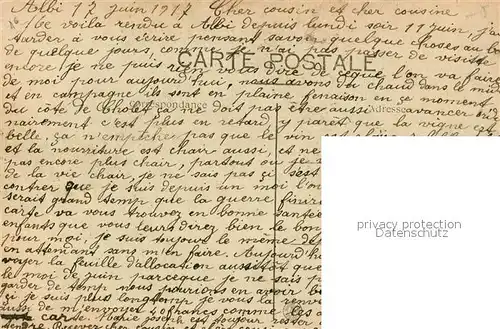 Albi 17 juin 1917 Cher cousin et cher cousine
Me voila rendu a Albi depuis lundi soir 11 juin, j'ai
tarder à vous écrire pensant savoir quelque choses au b
de quelque jours, comme je n'ai pas passer de visite
CARTE POSTALE
encore je ne puis rien vous dire de ce que l'on va faire
de moi pour aujourd'hui, nous avons du chaud dans le midi
et en campagne ils sont en pleine fenaison en se moment
du côté de Cholet doit pas être aussi avancer
Correspondance
Adresse
nairement c'est plus en retard, y parêt que la vigne est
bille, ça n'empêche pas que le vin est
et la nourriture est chair aussi, et ne
pas encore plus chair, partout ou je
de la vie chair, je ne sais pas si s'est
contrer que je suis depuis un moi l'on
serais grand temp que la guerre finir
carte va vous trouvez en bonne santée
enfants que vous leurs direz bien le bon
pour moi, je suis toujours le même
en attendant sans m'en faire. Aujourd'h
voyer la feuille d'allocation aussitôt que
le moi de juin parceque je ne sais p
garder de temp nous pourions en avoir b
si je suis plus longtemp je vous la renv
aussi de m'envoyer 40 francs comme les
carte. Marie toujour rester
Recever cher cousin
privacy protection
Datenschutz